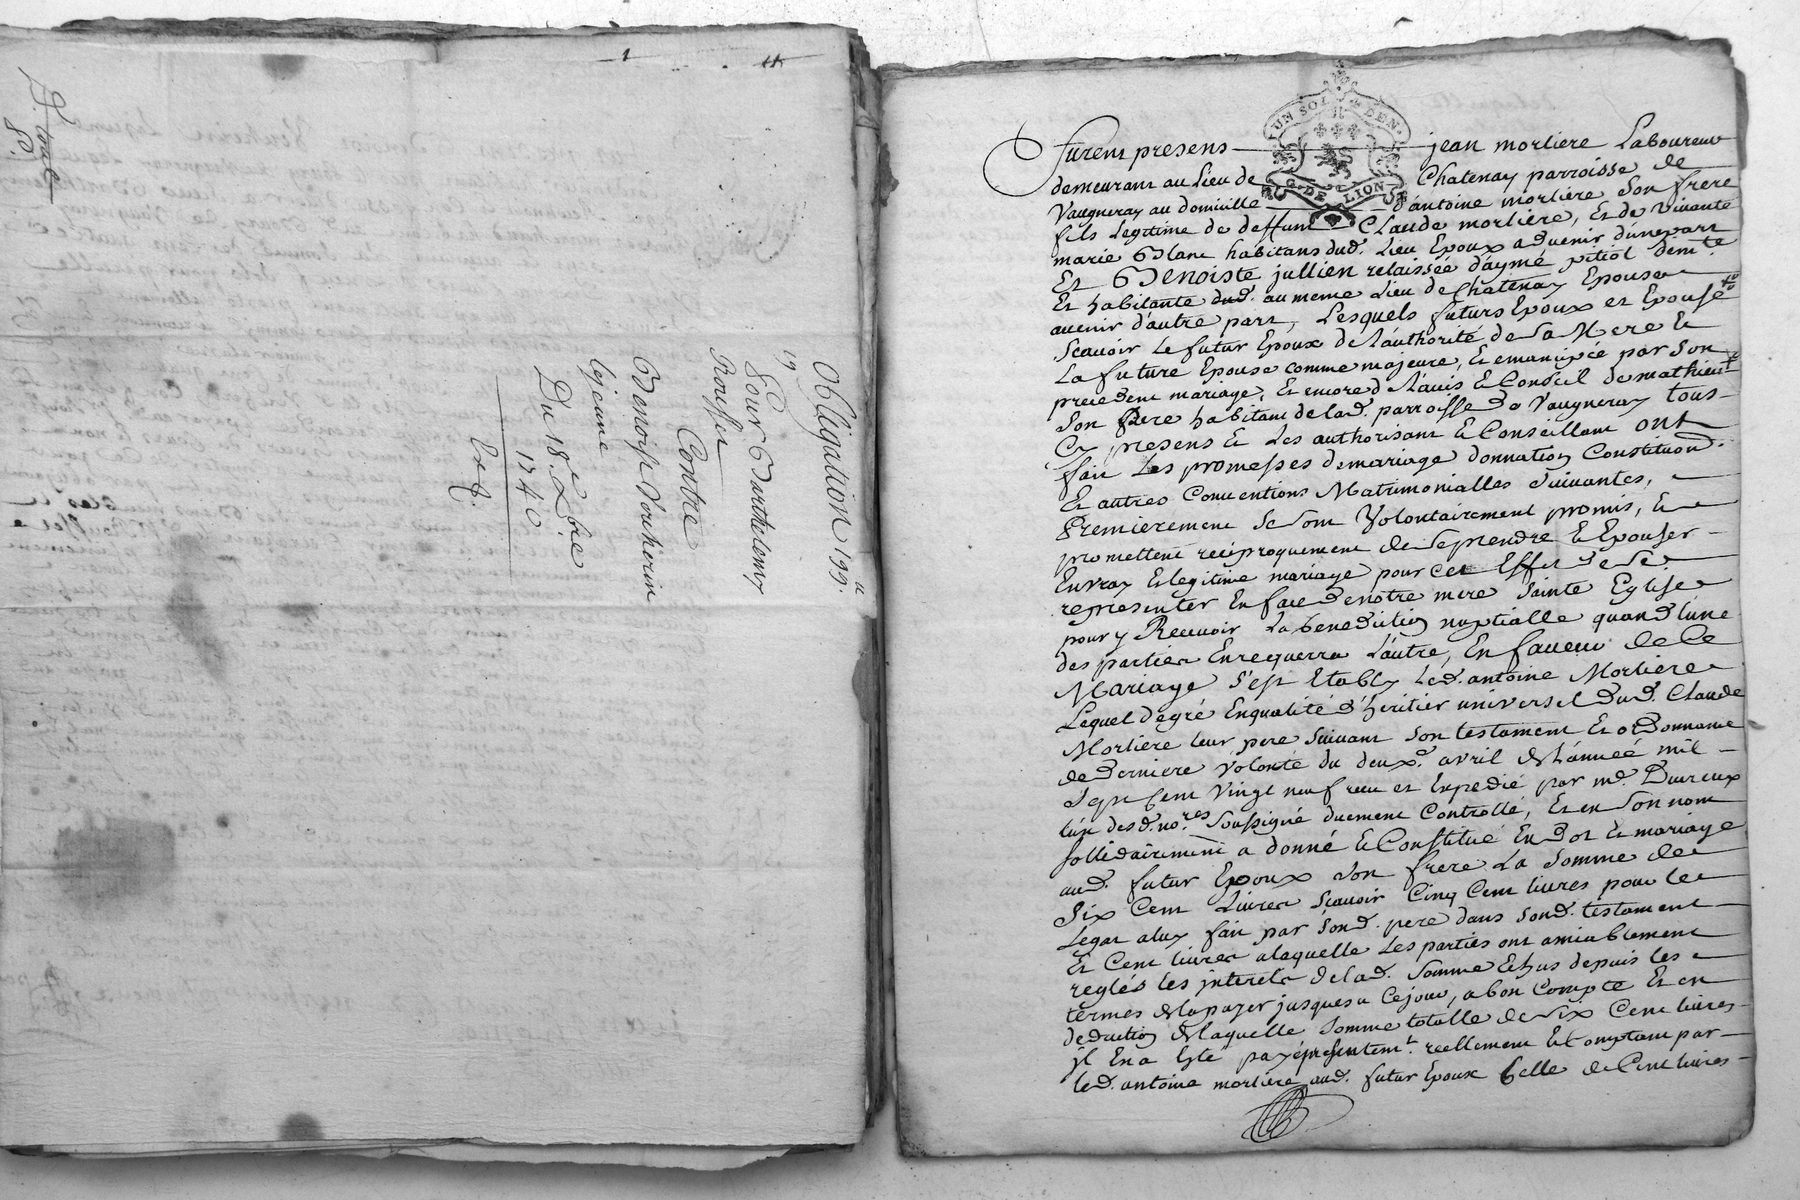 Obligation 199.ᵗᵗ
19
Pour Barthelemy
Rousset
Contre
Benoist Vouherin
lejeune
Du 18.ᵉ Xbre
1740
Ext.
UN SOL DEN.
G. DE LION
Furent presens jean morliere Laboureur
demeurant au Lieu de Chatenay parroisse de
Vaugneray au domicille d'antoine morliere son frere
fils legitime de deffunt Claude morliere, Et de vivante
marie Blanc habitans dud. Lieu Epoux advenir d'unepart
Et Benoiste jullien relaissée d'aymé pitiot dem.te
Et habitante dud. au meme Lieu de Chatenay Epouse
avenir d'autre part, Lesquels futurs Epoux et Epouse
scavoir Le futur Epoux de l'authorité de sa Mere Et
La future Epouse comme majeure, Et emancipée par son
precedent mariage, Et encore de l'avis Et Conseil de mathieu
son Pere habitant de lad. parroisse de Vaugneray tous
Cy presens Et Les authorisant Et Conseillant ont
fait Les promesses de mariage donnation Constitution
Et autres Conventions Matrimonialles suivantes,
Premierement se sont Volontairement promis, Et
promettent reciproquement de se prendre Et Epouser
Envray Et legitime mariage pour cet Effet de se
representer En face de notre mere sainte Eglise
pour y Recevoir La benediction nuptialle quand l'une
des parties En requerra L'autre, En faveur de Ce
Mariage s'est Etably Led. antoine Morliere
Lequel de gré Enqualité d'heritier universel dud. Claude
Morliere leur pere suivant son testament Et ordonnance
de derniere volonté du deux.e avril de l'année mil
sept Cent vingt neuf receu et Expedié par m.e Dureux
l'un des d. no.res soussigné duement Controllé, Et en son nom
sollidairement a donné Et Constitué En dot Et mariage
aud. futur Epoux son frere La somme de
six Cent Livres scavoir Cinq Cent livres pour le
Legat aluy fait par sond. pere dans sond. testament
Et Cent livres a laquelle Les parties ont amiablement
reglés les interets de lad. somme Echus depuis les
termes de la payer jusques a Cejour, a bon Compte Et en
deduction de laquelle somme totalle de six Cent livres
jl En a Eté payé presentem.t reellement Et Comptant par
led. antoine morliere aud. futur Epoux Celle de Cent livres